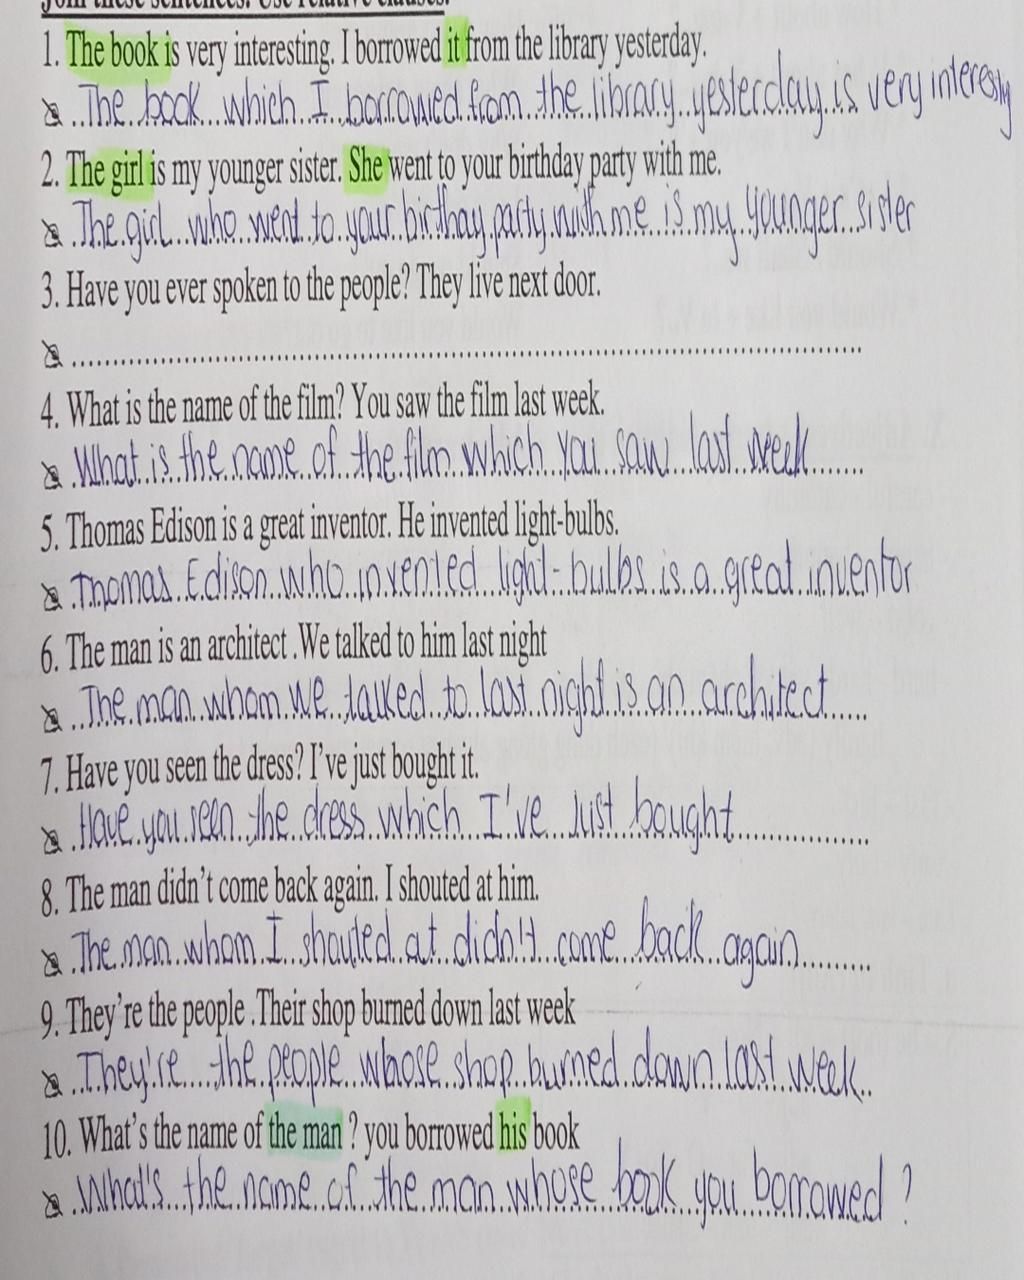 Join these sentences. Use relative clauses.
1. The book is very interesting. I borrowed it from the library yesterday.
The book which I borrowed from the library yesterday is very interesting
2. The girl is my younger sister. She went to your birthday party with me.
The girl who went to your birthay party with me is my younger sister
3. Have you ever spoken to the people? They live next door.
4. What is the name of the film? You saw the film last week.
What is the name of the film which you saw last week
5. Thomas Edison is a great inventor. He invented light-bulbs.
Thomas Edison who invented light-bulbs is a great inventor
6. The man is an architect .We talked to him last night
The man whom we talked to last night is an architect
7. Have you seen the dress? I've just bought it.
Have you seen the dress which I've just bought
8. The man didn't come back again. I shouted at him.
The man whom I shouted at didn't come back again
9. They're the people .Their shop burned down last week
They're the people whose shop burned down last week
10. What's the name of the man ? you borrowed his book
What's the name of the man whose book you borrowed ?